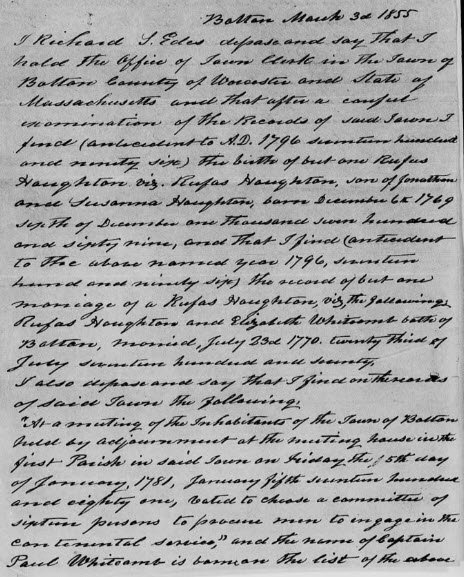 Bolton March 3d 1855
I Richard S. Edes depose and say that I
hold the Office of Town Clerk in the Town of
Bolton County of Worcester and State of
Massachusetts and that after a careful
examination of the Records of said Town I
find (antecedent to A.D. 1796 seventeen hundred
and ninety six) the birth of but one Rufus
Houghton, viz. Rufus Houghton, son of Jonathan
and Susanna Houghton, born December 6th 1769
sixth of December one thousand seven hundred
and sixty nine, and that I find (antecedent
to the above named year 1796, seventeen
hund and ninety six) the record of but one
marriage of a Rufus Houghton, viz, the following,
Rufus Houghton and Elizabeth Whitcomb both of
Bolton, married, July 23d 1770. twenty third of
July seventeen hundred and seventy.
I also depose and say that I find on the records
of said Town the following.
"At a meeting of the Inhabitants of the Town of Bolton
held by adjournment at the meeting house in the
first Parish in said Town on Friday the 5th day
of January, 1781, January fifth seventeen hundred
and eighty one, Voted to choose a committee of
sixteen persons to procure men to ingage in the
continental service," and the name of Captain
Paul Whitcomb is borne on the list of the above